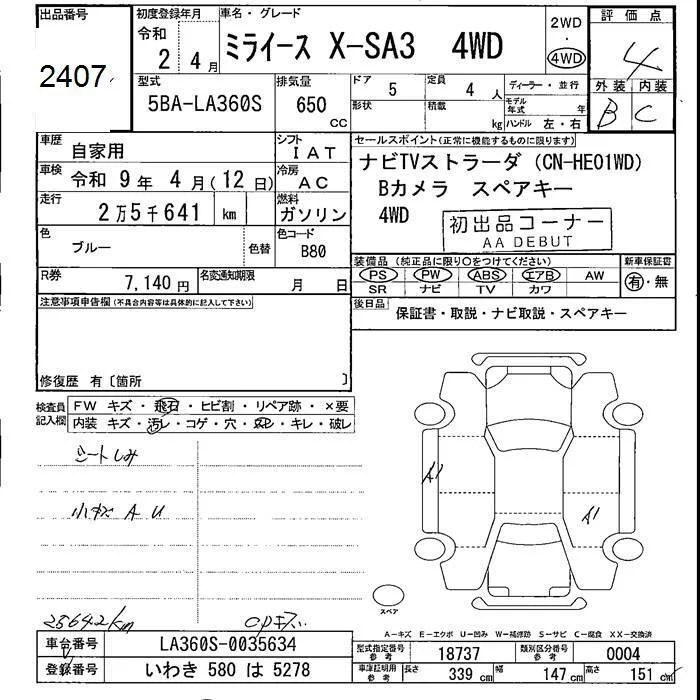 出品番号
2407
初度登録年月
令和
2 4 月
車名・グレード
ミライース X-SA3 4WD
2WD
4WD
評価点
4
外装 内装
B C
型式
5BA-LA360S
排気量
650
CC
ドア
5
定員
4 人
形状
積載
kg
ディーラー・並行
モデル年式
年
ハンドル 左・右
車歴
自家用
シフト
IAT
車検
令和 9 年 4 月(12 日)
冷房
AC
走行
2万5千641 km
燃料
ガソリン
色
ブルー
色替
色コード
B80
R券
7,140 円
名変通知期限
月 日
セールスポイント(正常に機能するものに限ります)
ナビTVストラーダ (CN-HE01WD)
Bカメラ スペアキー
4WD
初出品コーナー
AA DEBUT
装備品 (純正品に限り○をつけてください)
PS PW ABS エアB AW
SR ナビ TV カワ
新車保証書
有・無
後日品
保証書・取説・ナビ取説・スペアキー
注意事項申告欄(不具合内容等は具体的に記入して下さい)
修復歴 有〔箇所 〕
検査員記入欄
FW キズ・飛石・ヒビ割・リペア跡・×要
内装 キズ・汚レ・コゲ・穴・凹レ・キレ・破レ
シートしみ
小キズ A U
25642km
A1
A1
スペア
A-キズ E-エクボ U-凹み W-補修跡 S-サビ C-腐食 XX-交換済
車台番号
LA360S-0035634
登録番号
いわき 580 は 5278
型式指定番号
参考
18737
類別区分番号
参考
0004
車庫証明用
参考
長さ 339 cm 幅 147 cm 高さ 151 cm